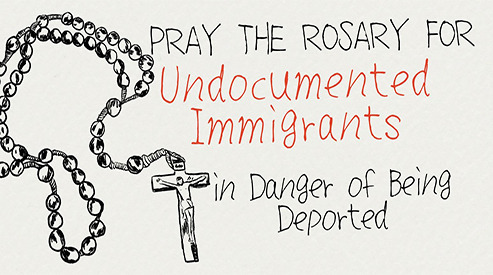 PRAY THE ROSARY FOR
Undocumented
Immigrants
in Danger of Being
Deported